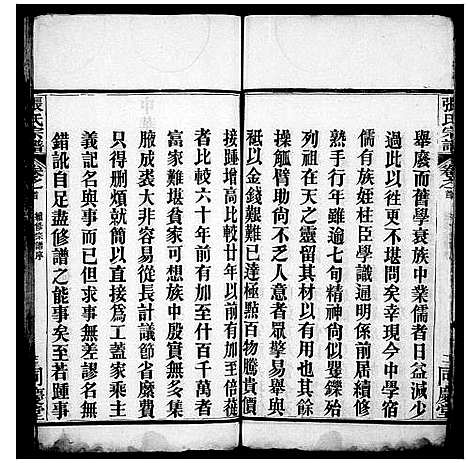 張氏宗譜
卷之首
三
同慶堂
舉廢而舊學衰族中業儒者日益減少
過此以往更不堪問矣幸現今中學宿
儒有族姪桂臣學識通明係前屆續修
熟手行年雖逾七旬精神尚郹矍鑠殆
列祖在天之靈留其材以有用也其餘
操觚臂助尚不乏人意者眾擎易舉與
秪以金錢艱難已達極點百物騰貴價
接踵增高比較廿年以前有加至倍徙
者比較六十年前有加至什百千萬者
富家難堪貧家可想族中殷實無多集
腋成裘大非容易從長計議節省糜費
只得刪煩就簡以直接為工蓋家乘主
義記名與事而已但求事無差謬名無
錯訛自足盡修譜之能事矣至若踵事
張氏宗譜
卷之首
續修宗譜序
三
同慶堂